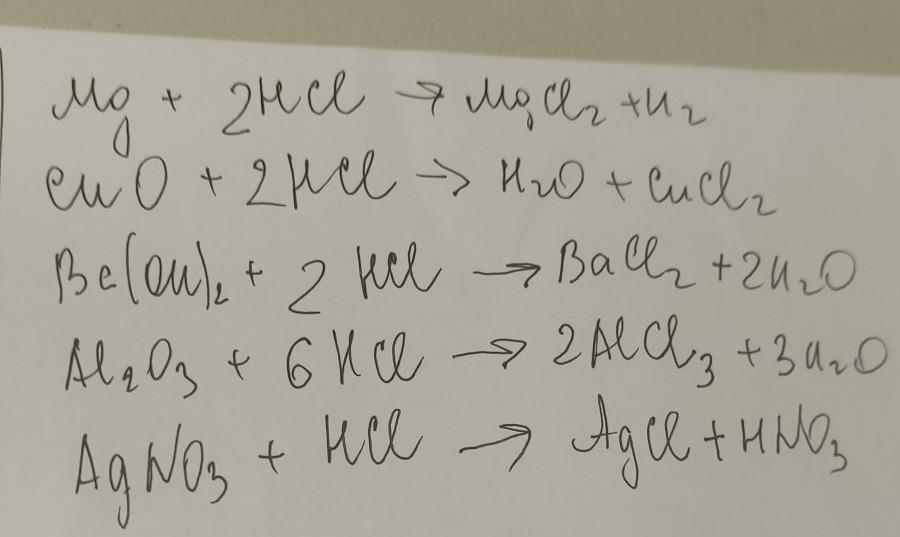 Mg + 2HCl → MgCl₂ + H₂
CuO + 2HCl → H₂O + CuCl₂
Be(OH)₂ + 2 HCl → BaCl₂ + 2H₂O
Al₂O₃ + 6HCl → 2AlCl₃ + 3H₂O
AgNO₃ + HCl → AgCl + HNO₃